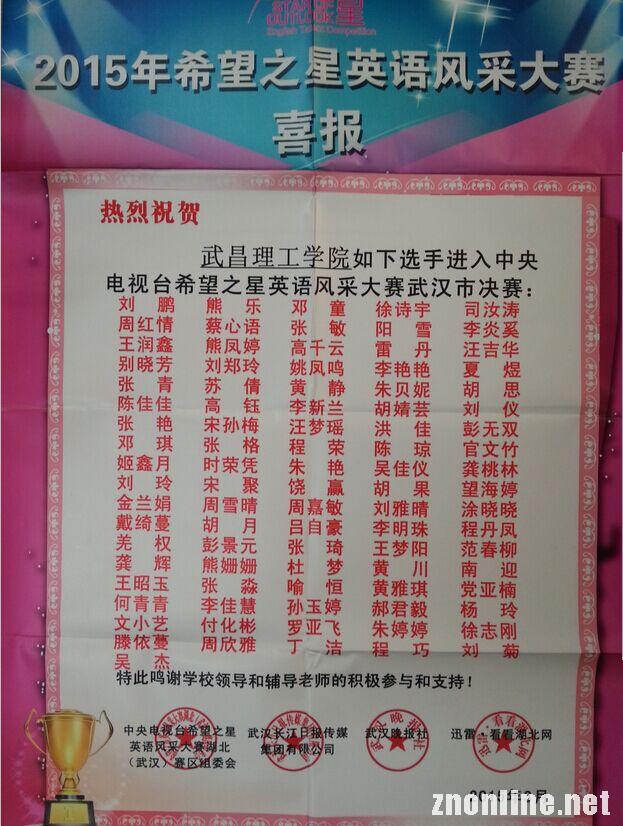 STAR OF
OUTLOOK 星
English Talent Competition
2015年希望之星英语风采大赛
喜报
热烈祝贺
武昌理工学院如下选手进入中央
电视台希望之星英语风采大赛武汉市决赛：
刘 鹏 熊 乐 邓 童 徐诗宇 司汝涛
周红情 蔡心语 张 敏 阳 雪 李炎奚
王润鑫 熊凤婷 高千云 雷 丹 汪吉华
别晓芳 刘郑玲 姚凤鸣 李艳艳 夏 煜
张 青 苏 倩 黄 静 朱贝妮 胡 思
陈佳佳 高 钰 李新兰 胡婧芸 刘 仪
张 艳 宋孙梅 汪梦瑶 洪 佳 彭无双
邓 琪 张 格 程 荣 陈 琼 官文竹
姬鑫月 时荣凭 朱 艳 吴佳仪 龚桃林
刘 玲 宋 聚 饶 赢 胡 果 望海婷
金兰娟 周雪晴 周嘉敏 刘雅晴 涂晓晓
戴绮蔓 胡 月 吕自豪 李明珠 程丹凤
羌 权 彭景元 张 琦 王梦阳 范春柳
龚 辉 熊姗姗 杜 梦 黄 川 南 迎
王昭玉 张 淼 喻 恒 黄雅琪 党亚楠
何青青 李佳慧 孙玉婷 郝君毅 杨 玲
文小艺 付化彬 罗亚飞 朱婷婷 徐志刚
滕依蔓 周欣雅 丁 洁 程 巧 刘 菊
吴 杰
特此鸣谢学校领导和辅导老师的积极参与和支持！
中央电视台希望之星 武汉长江日报传媒 武汉晚报社 迅雷·看看湖北网
英语风采大赛湖北 集团有限公司
（武汉）赛区组委会
znonline.net